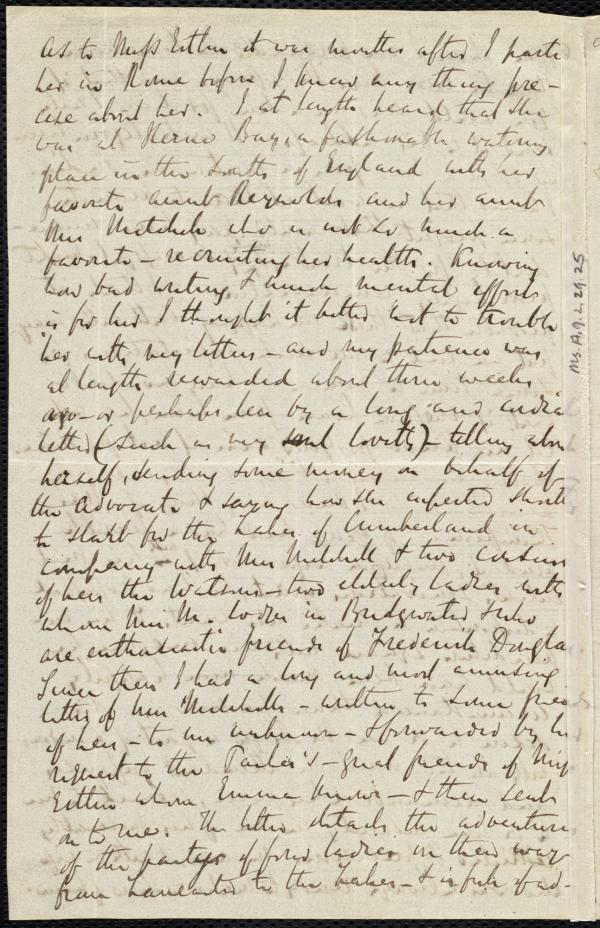 As to Miss Esther it was months after I parte
her in Rome before I knew any thing pre-
cise about her. I at length heard that she
was at Herne Bay, a fashionable watering
place in the South of England with her
favorite aunt Reynolds and her aunt
Mrs Mitchell who is not so much a
favorite - recruiting her health. Knowing
how bad writing & much mental effort
is for her I thought it better not to trouble
her with my letters - and my patience was
at length rewarded about three weeks
ago - or perhaps less by a long and cordia
letter (such as my soul loveth) - telling abou
herself, sending some money on behalf of
the Advocate & saying how she expected shortl
to start for the Lakes of Cumberland in
company with Mrs Mitchell & two cousins
of hers the Watsons - two elderly ladies with
whom Mrs M. lodges in Bridgwater & who
are enthusiastic friends of Frederick Dougla
Since then I had a long and most amusing
letter of Mrs Mitchells - written to some frien
of hers - to me unknown - & forwarded by her
request to the - great friends of Miss
Esther whom Emma knows - & then sent
on to me. The letter details the adventures
of the party of four ladies on their way
from Lancaster to the Lakes - & is full of ad-
Ms. A. 9. 2. 29. 25